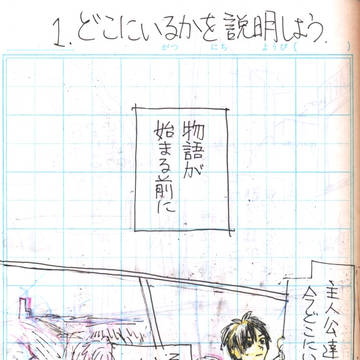 1.どこにいるかを説明しよう.
がつ にち ようび(
物語が
始まる前に
主人公達
今どこにい